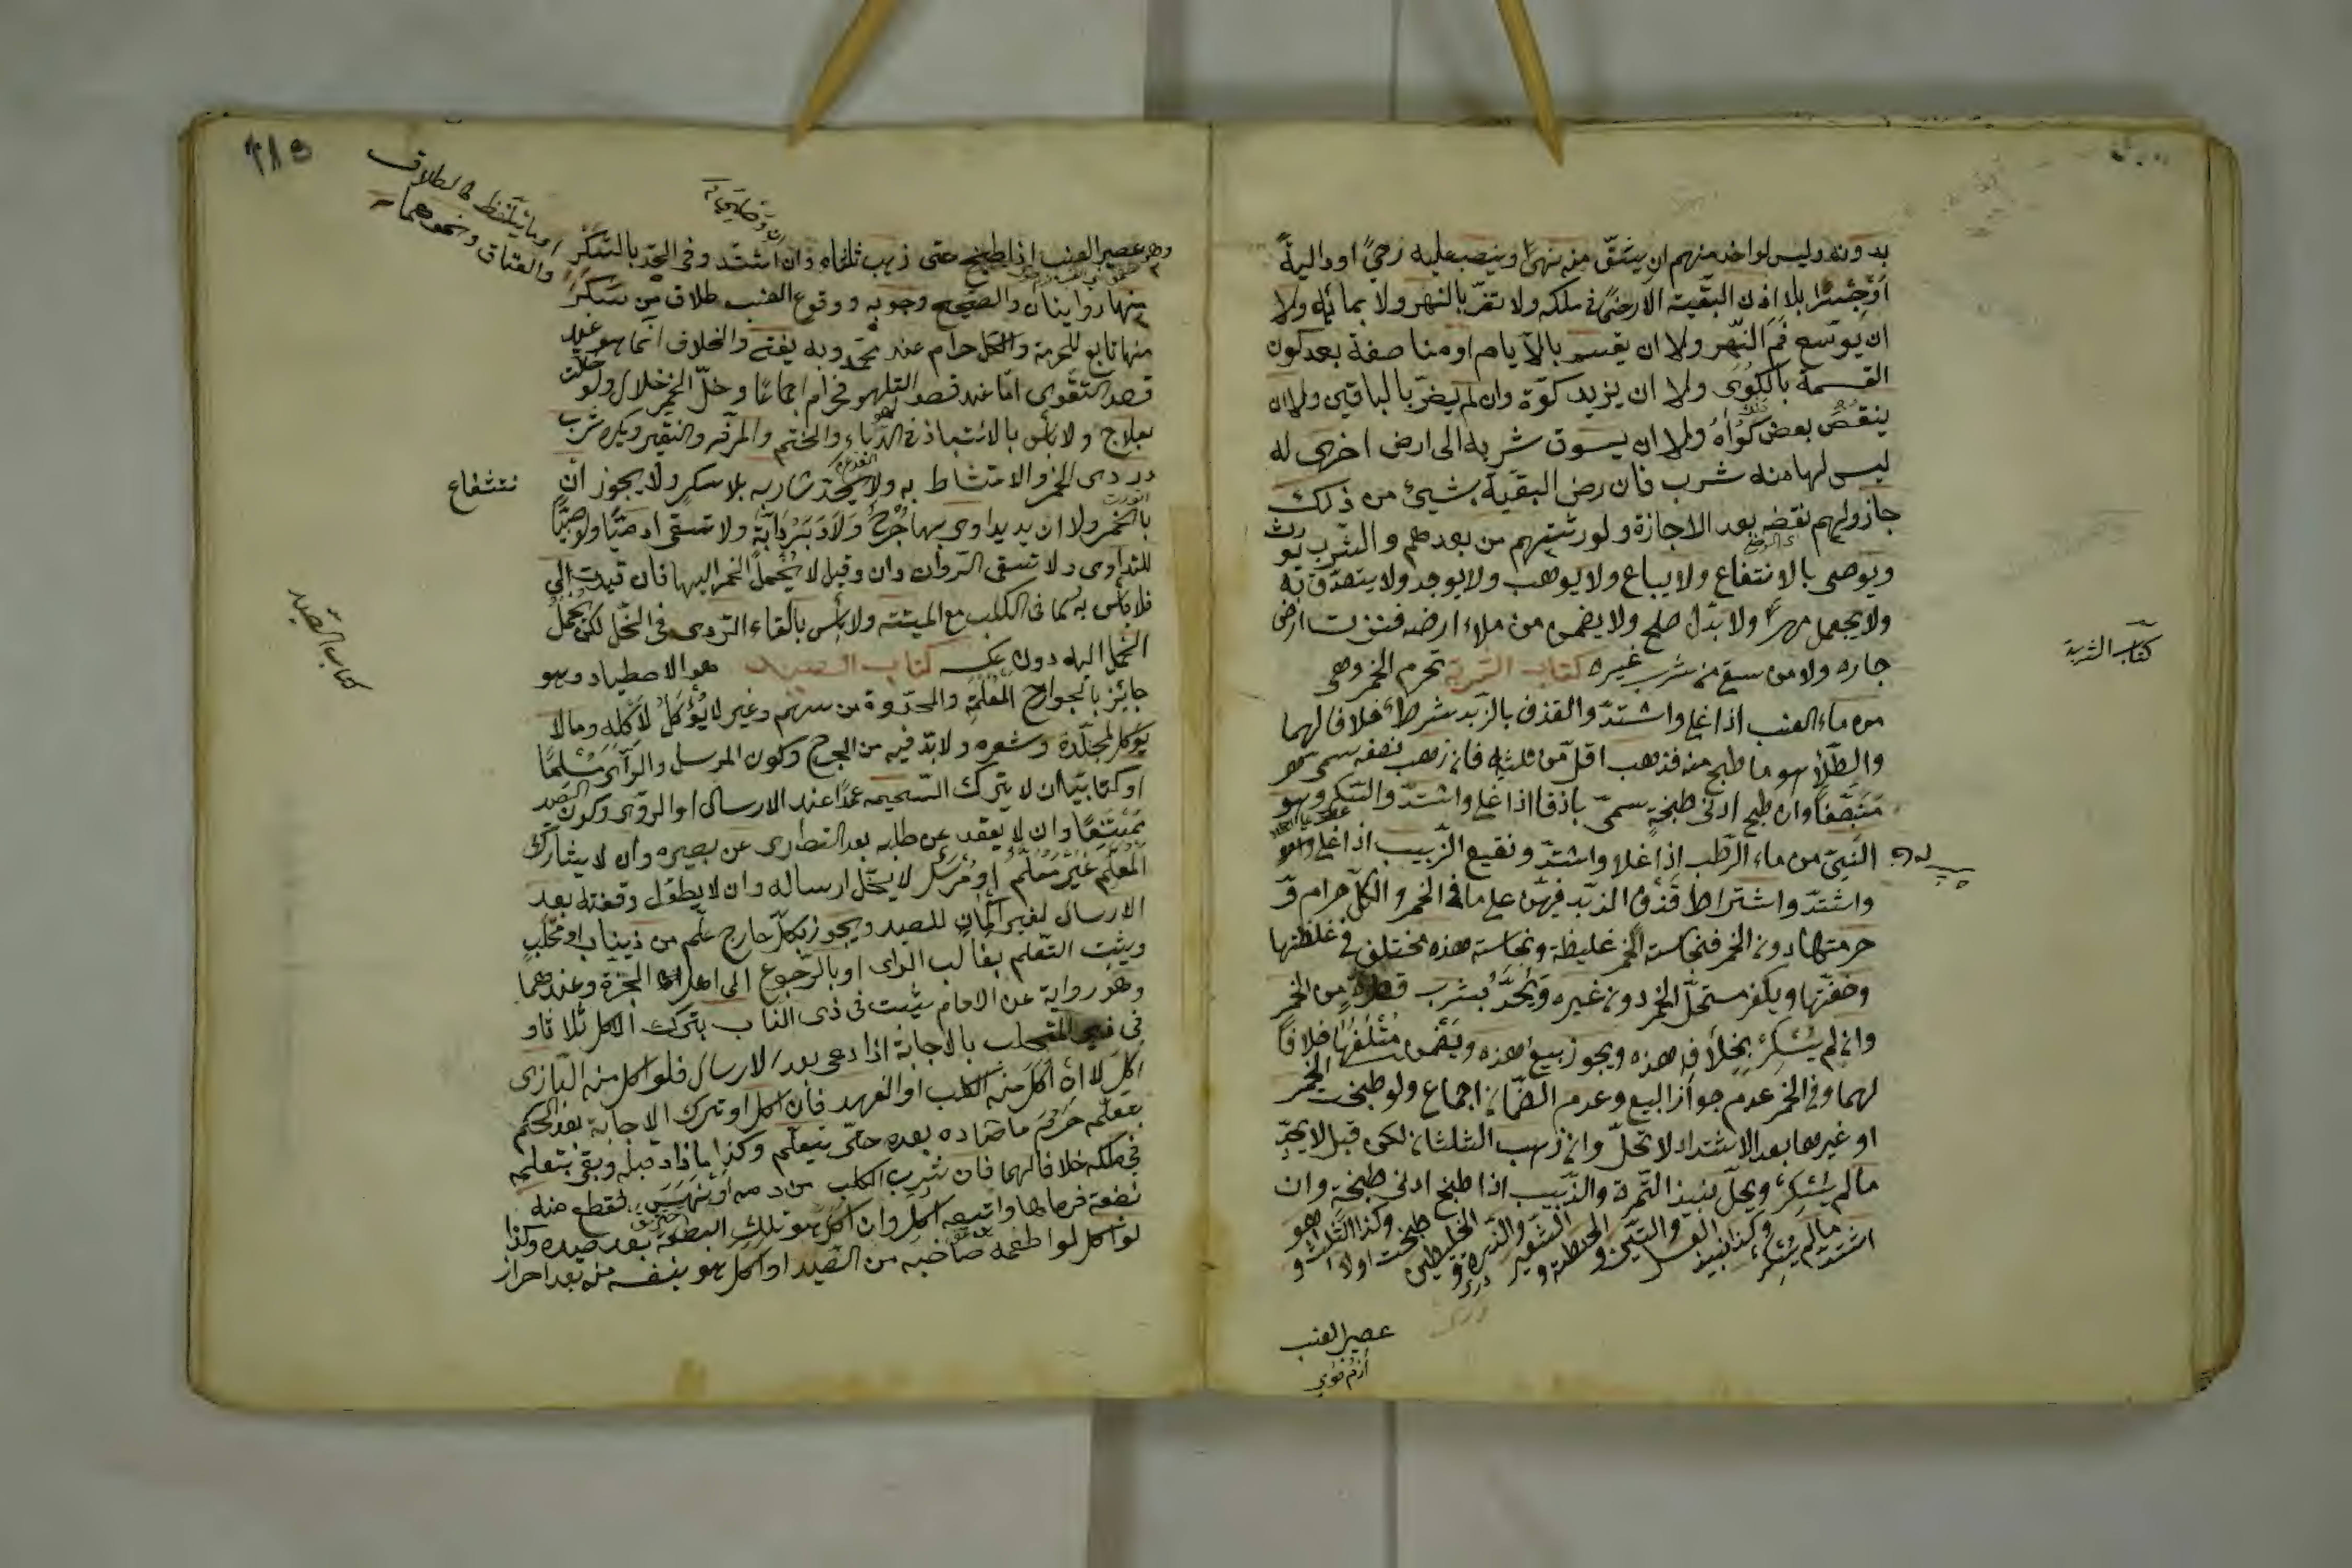 بدونه وليس لواحد منهم ان يشق منه نهرا وينصب عليه رحى او دالية
او جسرا بلا اذن البقية الا رحى في ملكه ولا تضر بالنهر ولا بمائه ولا
ان يوسع فم النهر ولا ان يقسم بالايام او مناصفة بعد كون
القسمة بالكوى ولا ان يزيد كوة وان لم يضر بالباقين ولا ان
ينقص بعض كواه ولا ان يسوق شربه الى ارض اخرى له
ليس لها منه شرب فان رضى البقية بشيئ من ذلك
جاز ولهم نقضه بعد الاجازة ولورثتهم من بعدهم والشرب يورث
ويوصى بالانتفاع ولا يباع ولا يوهب ولا يوجر ولا يتصدق به
ولا يجعل مهرا ولا بدل صلح ولا يضمن من ملاء ارضه فنزت ارض
جاره ولا من سقى من شرب غيره كتاب الشربة تحرم الخمر وهى
كتاب الشربة
من ماء العنب اذا غلى واشتد والقذف بالزبد شرط خلافا لهما
والطلا وهو ما طبخ منه فذهب اقل من ثلثيه فان ذهب نصفه سمى
منصفا وان طبخ ادنى طبخة سمى باذقا اذا غلى واشتد والسكر وهو
النيئ من ماء الرطب اذا غلا واشتد ونقيع الزبيب اذا غلى
واشتد واشتراط قذف الزبد فيهن على ما فى الخمر والكل حرام و
حرمتها دون الخمر فنجاسة الخمر غليظة ونجاسة هذه مختلف فى غلظتها
وخفتها ويكفر مستحل الخمر دون غيره ويحد بشرب قطرة من الخمر
وان لم يسكر بخلاف هذه ويجوز بيع هذه ويضمن متلفها خلافا
لهما وفى الخمر عدم جواز البيع وعدم الضمان اجماع ولو طبخت الخمر
او غيرها بعد الاشتداد لا تحل وان ذهب الثلثان لكن قيل لا يحد
ما لم يسكر ويحل نبيذ التمر والزبيب اذا طبخ ادنى طبخة وان
اشتد ما لم يسكر وكذا نبيذ العسل والتين والحنطة والشعير والذرة والخليطين طبخت اولا وكذا المثلث وهو
عصير العنب
وهو عصير العنب اذا طبخ حتى ذهب ثلثاه وان اشتد وفى الحد بالسكر
او ما يتلفظ كالطلاق
والعتاق ونحوهما
منها روايتان والصحيح وجوبه ووقوع العنب طلاق من سكر
منها تابع للحرمة والكل حرام عند محمد وبه يفتى والخلاف انما هو عند
قصد التقوى اما عند قصد التلهو فحرام اجماعا وخل الخمر حلال ولو خللت
بعلاج ولا بأس بالانتباذ فى الدباء والحنتم والمزفت والنقير ويكره شرب
دردى الخمر والامتشاط به ولا يحد شاربه بلا سكر ولا يجوز ان
بالخمر ولا ان يداوى بها جرح ولا دبر دابة ولا تسقى ادميا ولو صبيا
للتداوى ولا تسقى الدواب وقيل لا يحمل الخمر اليها فان قيدت الى
فلا بأس به كما فى الكلب مع الميتة ولا بأس بالقاء الدردى فى الخل لكن يحمل
الخل اليه دون عكسه كتاب الصيد هو الاصطياد وهو
كتاب الصيد
جائز بالجوارح المعلمة والمحددة من سهم وغيره لما يؤكل لاكله وما لا
يؤكل لجلده وشعره ولا بد فيه من الجرح وكون المرسل والرامى مسلما
او كتابيا وان لا يترك التسمية عمدا عند الارسال او الرمى وكون الصيد
ممتنعا وان لا يقعد عن طلبه بعد التوارى عن بصره وان لا يشارك
المعلم غير معلم او مرسل لا يحل ارساله وان لا يطول وقفته بعد
الارسال لغير اكمان للصيد ويجوز بكل جارح علم من ذى ناب او مخلب
ويثبت التعلم بغالب الراى او بالرجوع الى اهل الخبرة وعندهما
وهو رواية عن الامام يثبت فى ذى الناب بترك الاكل ثلاثا و
فى ذى المخلب بالاجابة اذا دعى بعد الارسال فلو اكل منه البازى
اكل لا ان اكل منه الكلب او الفهد فان اكل او ترك الاجابة بعد الحكم
بتعلمه حرم ما صاده بعده حتى يتعلم وكذا ما صاد قبله وبقى
فى ملكه خلافا لهما فان شرب الكلب من دمه او نهس فقطع منه
بضعة فرماها واتبعه اكل وان اكل هو تلك البضعة بعد صيده وكذا
لو اكل لو اطعمه صاحبه من الصيد او اكل هو بنفسه منه بعد احراز